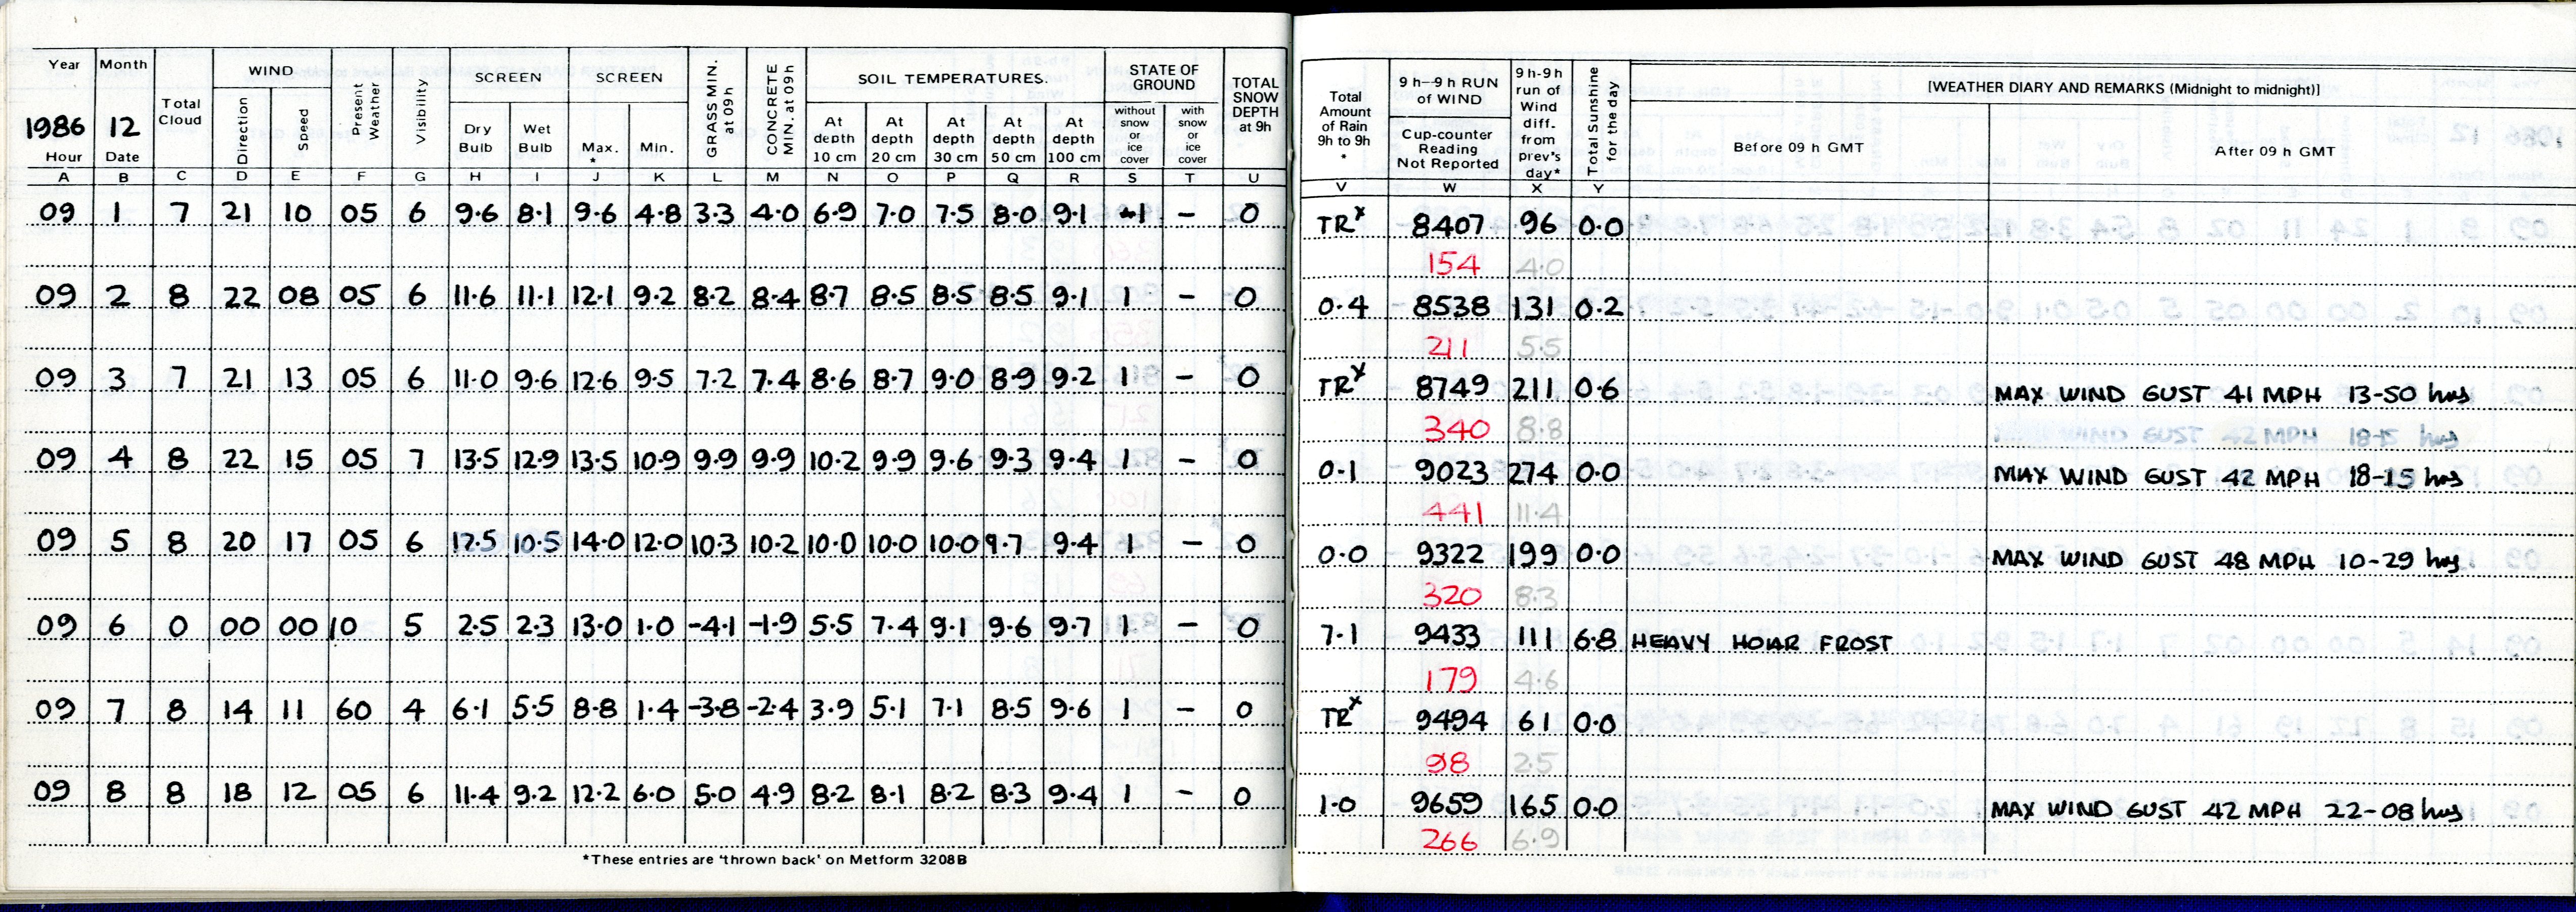 Year Month WIND SCREEN SCREEN GRASS MIN. at 09h CONCRETE MIN. at 09h SOIL TEMPERATURES. STATE OF GROUND TOTAL SNOW DEPTH at 9h
1986 12 Total Cloud Direction Speed Present Weather Visibility Dry Bulb Wet Bulb Max. * Min. At depth 10 cm At depth 20 cm At depth 30 cm At depth 50 cm At depth 100 cm without snow or ice cover with snow or ice cover
Hour Date
A B C D E F G H I J K L M N O P Q R S T U
09 1 7 21 10 05 6 9.6 8.1 9.6 4.8 3.3 4.0 6.9 7.0 7.5 8.0 9.1 1 – 0
09 2 8 22 08 05 6 11.6 11.1 12.1 9.2 8.2 8.4 8.7 8.5 8.5 8.5 9.1 1 – 0
09 3 7 21 13 05 6 11.0 9.6 12.6 9.5 7.2 7.4 8.6 8.7 9.0 8.9 9.2 1 – 0
09 4 8 22 15 05 7 13.5 12.9 13.5 10.9 9.9 9.9 10.2 9.9 9.6 9.3 9.4 1 – 0
09 5 8 20 17 05 6 12.5 10.5 14.0 12.0 10.3 10.2 10.0 10.0 10.0 9.7 9.4 1 – 0
09 6 0 00 00 10 5 2.5 2.3 13.0 1.0 -4.1 -1.9 5.5 7.4 9.1 9.6 9.7 1 – 0
09 7 8 14 11 60 4 6.1 5.5 8.8 1.4 -3.8 -2.4 3.9 5.1 7.1 8.5 9.6 1 – 0
09 8 8 18 12 05 6 11.4 9.2 12.2 6.0 5.0 4.9 8.2 8.1 8.2 8.3 9.4 1 – 0
*These entries are 'thrown back' on Metform 3208B
Total Amount of Rain 9h to 9h * 9 h–9 h RUN of WIND Cup-counter Reading Not Reported 9 h-9 h run of Wind diff. from prev's day* Total Sunshine for the day [WEATHER DIARY AND REMARKS (Midnight to midnight)]
Before 09 h GMT After 09 h GMT
V W X Y
TRx 8407 96 0.0
154 4.0
0.4 8538 131 0.2
211 5.5
TRx 8749 211 0.6 MAX WIND GUST 41 MPH 13-50 hrs
340 8.8 MAX WIND GUST 42 MPH 18-15 hrs
0.1 9023 274 0.0 MAX WIND GUST 42 MPH 18-15 hrs
441 11.4
0.0 9322 199 0.0 MAX WIND GUST 48 MPH 10-29 hrs
320 8.3
7.1 9433 111 6.8 HEAVY HOAR FROST
179 4.6
TRx 9494 61 0.0
98 2.5
1.0 9659 165 0.0 MAX WIND GUST 42 MPH 22-08 hrs
266 6.9